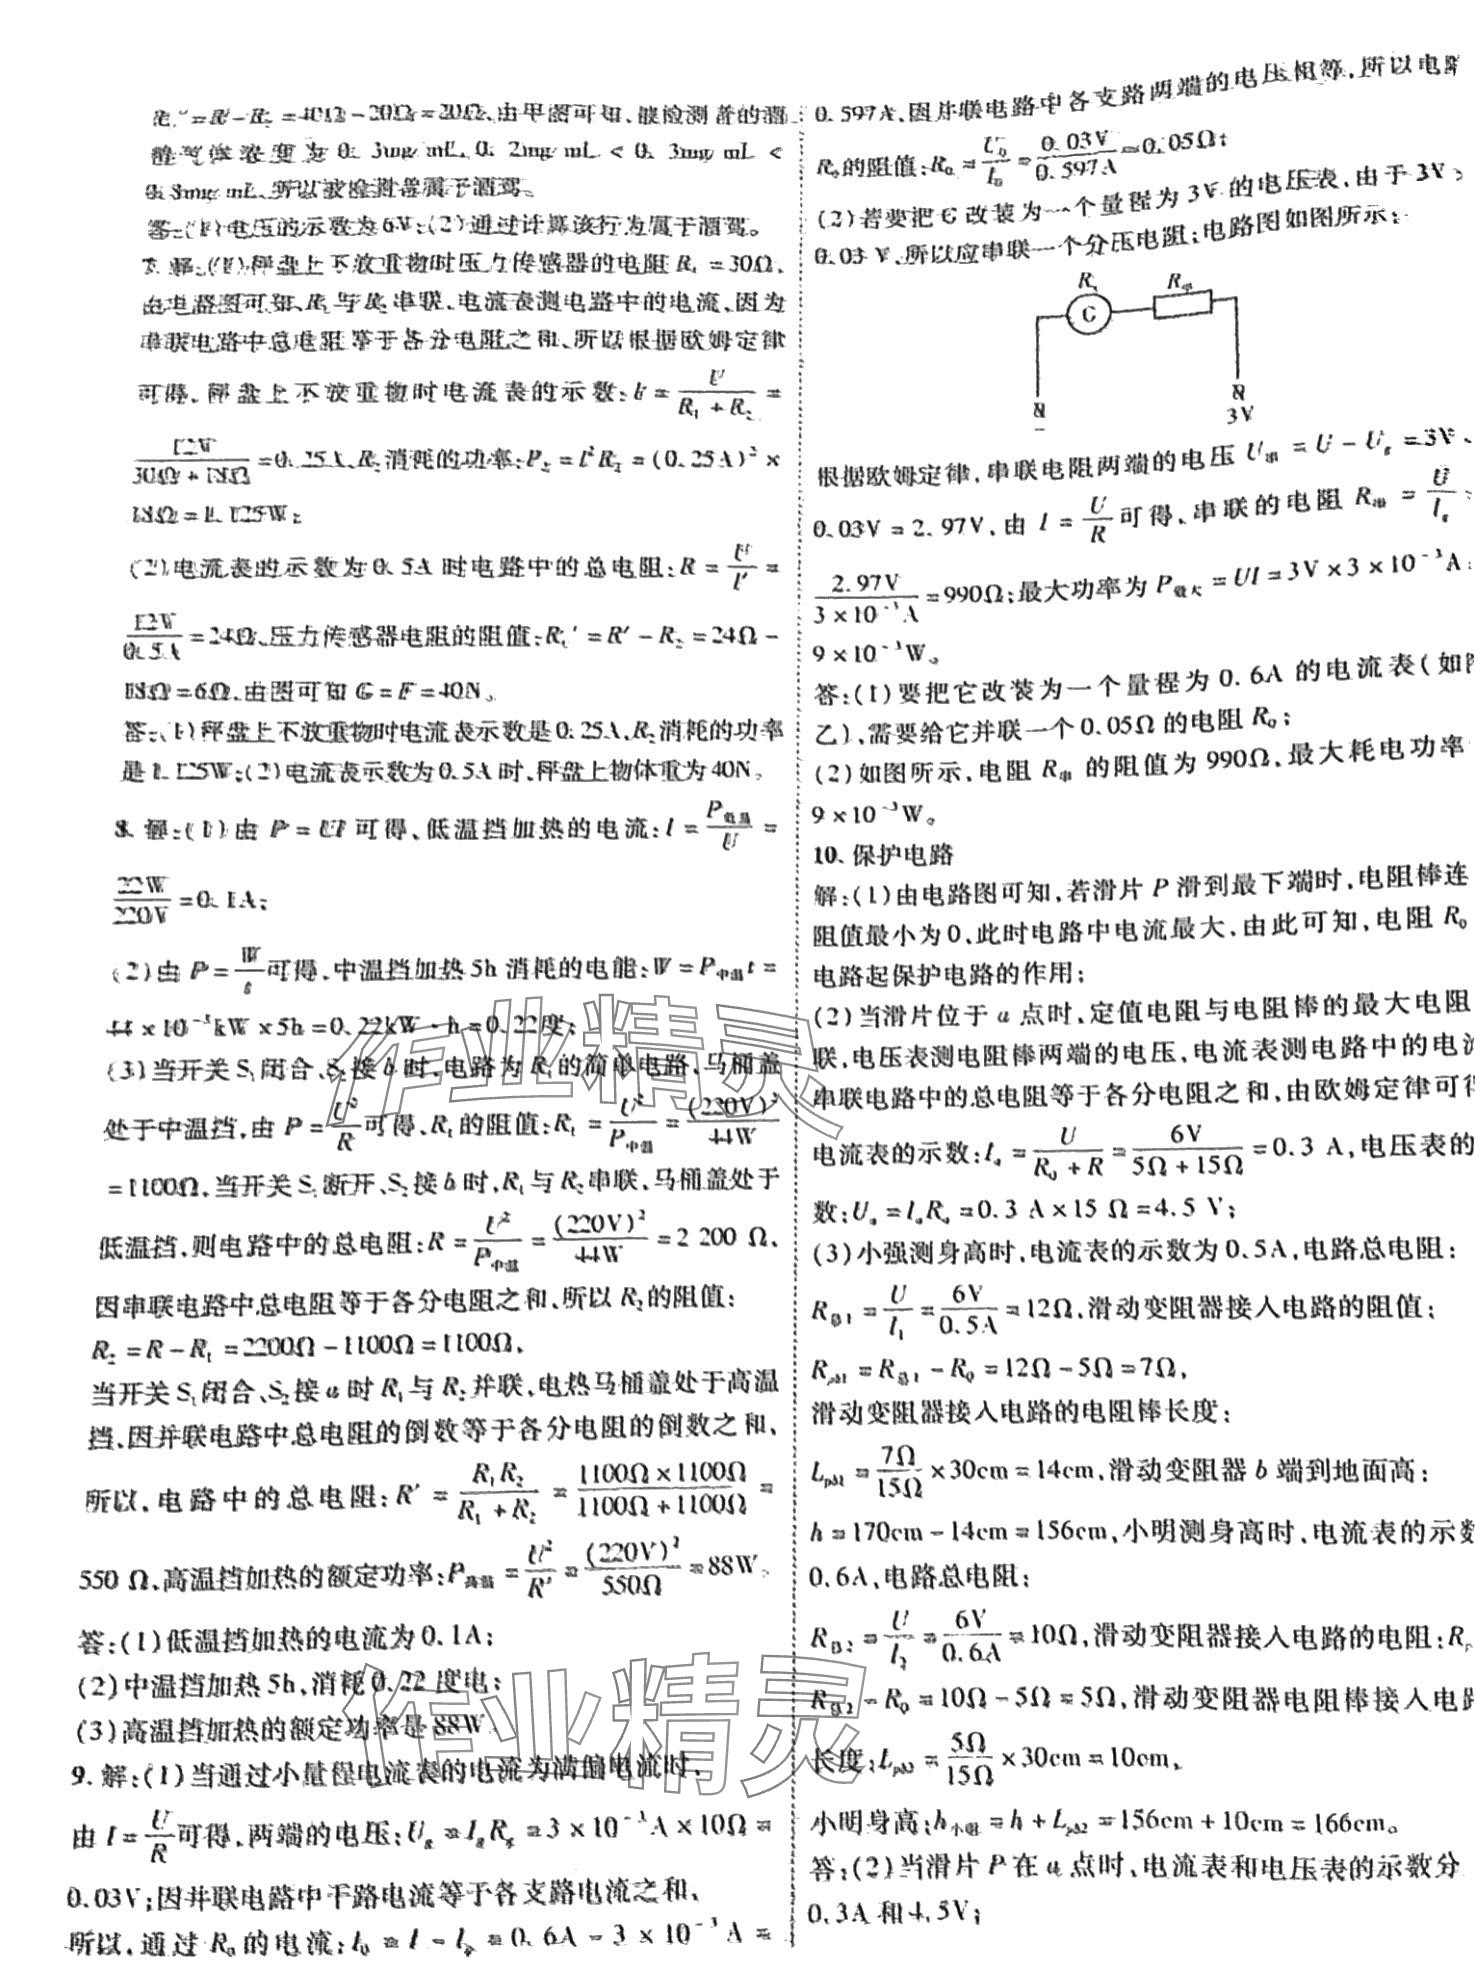 R₁″=R-R₂=40Ω-20Ω=20Ω,由甲图可知,被检测者的酒
精气体浓度为 0.3mg/mL,0.2mg/mL<0.3mg/mL<
0.8mg/mL,所以被检测者属于酒驾。
答:(1)电压的示数为6V;(2)通过计算该行为属于酒驾。
7.解:(1)秤盘上不放重物时压力传感器的电阻R₁=30Ω,
由电路图可知,R₁与R₂串联,电流表测电路中的电流,因为
串联电路中总电阻等于各分电阻之和,所以根据欧姆定律
可得,秤盘上不放重物时电流表的示数:I=U/(R₁+R₂)=
12V/(30Ω+18Ω)=0.25A,R₂消耗的功率:P₂=I²R₂=(0.25A)²×
18Ω=1.125W;
(2)电流表的示数为0.5A时电路中的总电阻:R=U/I′=
12V/0.5A=24Ω,压力传感器电阻的阻值:R₁′=R′-R₂=24Ω-
18Ω=6Ω,由图可知G=F=40N。
答:(1)秤盘上不放重物时电流表示数是0.25A,R₂消耗的功率
是1.125W;(2)电流表示数为0.5A时,秤盘上物体重为40N。
8.解:(1)由P=UI可得,低温挡加热的电流:I=P低温/U=
22W/220V=0.1A;
(2)由P=W/t可得,中温挡加热5h消耗的电能:W=P中温t=
44×10⁻³kW×5h=0.22kW·h=0.22度;
(3)当开关S₁闭合、S₂接b时,电路为R₁的简单电路,马桶盖
处于中温挡,由P=U²/R可得,R₁的阻值:R₁=U²/P中温=(220V)²/44W
=1100Ω,当开关S₁断开、S₂接b时,R₁与R₂串联,马桶盖处于
低温挡,则电路中的总电阻:R=U²/P中温=(220V)²/44W=2 200 Ω,
因串联电路中总电阻等于各分电阻之和,所以R₂的阻值:
R₂=R-R₁=2200Ω-1100Ω=1100Ω,
当开关S₁闭合、S₂接a时R₁与R₂并联,电热马桶盖处于高温
挡,因并联电路中总电阻的倒数等于各分电阻的倒数之和,
所以,电路中的总电阻:R′=R₁R₂/(R₁+R₂)=(1100Ω×1100Ω)/(1100Ω+1100Ω)=
550 Ω,高温挡加热的额定功率:P高温=U²/R′=(220V)²/550Ω=88W。
答:(1)低温挡加热的电流为0.1A;
(2)中温挡加热5h,消耗0.22度电;
(3)高温挡加热的额定功率是88W。
9.解:(1)当通过小量程电流表的电流为满偏电流时,
由I=U/R可得,两端的电压:Ug=IgRg=3×10⁻³A×10Ω=
0.03V;因并联电路中干路电流等于各支路电流之和,
所以,通过R₀的电流:I₀=I-Ig=0.6A-3×10⁻³A=
0.597A,因并联电路中各支路两端的电压相等,所以电阻
R₀的阻值:R₀=U₀/I₀=0.03V/0.597A=0.05Ω;
(2)若要把G改装为一个量程为3V的电压表,由于3V>
0.03 V,所以应串联一个分压电阻;电路图如图所示:
Rg R串
G
3V
根据欧姆定律,串联电阻两端的电压U串=U-Ug=3V-
0.03V=2.97V,由I=U/R可得,串联的电阻R串=U/Ig=
2.97V/(3×10⁻³A)=990Ω;最大功率为P最大=UI=3V×3×10⁻³A=
9×10⁻³W。
答:(1)要把它改装为一个量程为0.6A的电流表(如图
乙),需要给它并联一个0.05Ω的电阻R₀;
(2)如图所示,电阻R串的阻值为990Ω,最大耗电功率
9×10⁻³W。
10.保护电路
解:(1)由电路图可知,若滑片P滑到最下端时,电阻棒连
阻值最小为0,此时电路中电流最大,由此可知,电阻R₀
电路起保护电路的作用;
(2)当滑片位于a点时,定值电阻与电阻棒的最大电阻
联,电压表测电阻棒两端的电压,电流表测电路中的电流
串联电路中的总电阻等于各分电阻之和,由欧姆定律可得
电流表的示数:Ia=U/(R₀+R)=6V/(5Ω+15Ω)=0.3 A,电压表的
数:Ua=IaRa=0.3 A×15 Ω=4.5 V;
(3)小强测身高时,电流表的示数为0.5A,电路总电阻:
R总1=U/I₁=6V/0.5A=12Ω,滑动变阻器接入电路的阻值:
Rpb1=R总1-R₀=12Ω-5Ω=7Ω,
滑动变阻器接入电路的电阻棒长度:
Lpb1=7Ω/15Ω×30cm=14cm,滑动变阻器b端到地面高:
h=170cm-14cm=156cm,小明测身高时,电流表的示数
0.6A,电路总电阻:
R总2=U/I₂=6V/0.6A=10Ω,滑动变阻器接入电路的电阻:Rp
R总2-R₀=10Ω-5Ω=5Ω,滑动变阻器电阻棒接入电路
长度:Lpb2=5Ω/15Ω×30cm=10cm,
小明身高:h小明=h+Lpb2=156cm+10cm=166cm。
答:(2)当滑片P在a点时,电流表和电压表的示数分
0.3A和4.5V;
作业精灵
作业精灵